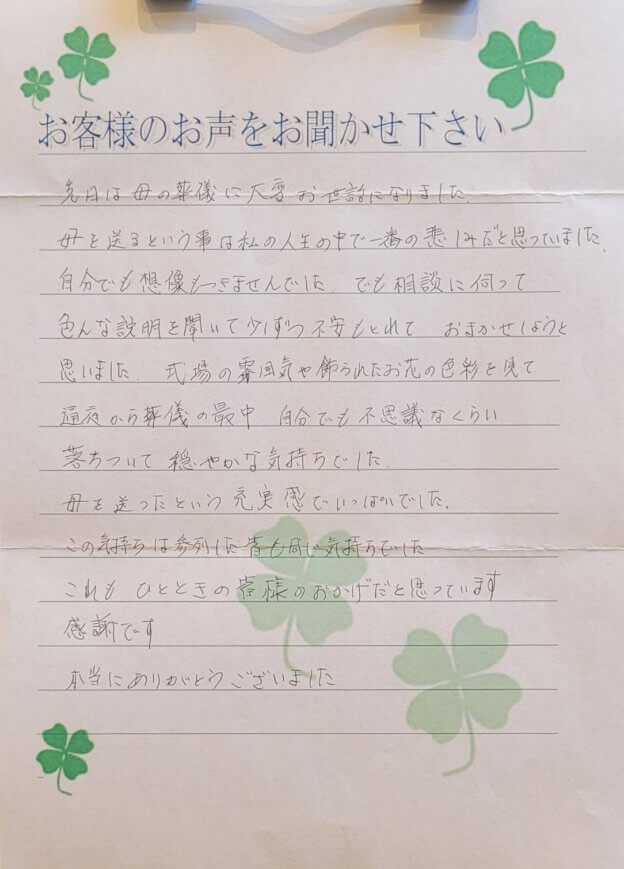 お客様のお声をお聞かせ下さい
先日は母の葬儀に大変お世話になりました。
母を送るという事は私の人生の中で一番の悲しみだと思っていました。
自分でも想像もつきませんでした。でも相談に伺って
色んな説明を聞いて少しずつ不安もとれて おまかせしようと
思いました。式場の雰囲気や飾られたお花の色彩を見て
通夜から葬儀の最中 自分でも不思議なくらい
落ちついて穏やかな気持ちでした。
母を送ったという充実感でいっぱいでした。
この気持ちは参列した皆も同じ気持ちでした
これも ひとときの皆様のおかげだと思っています
感謝です
本当にありがとうございました